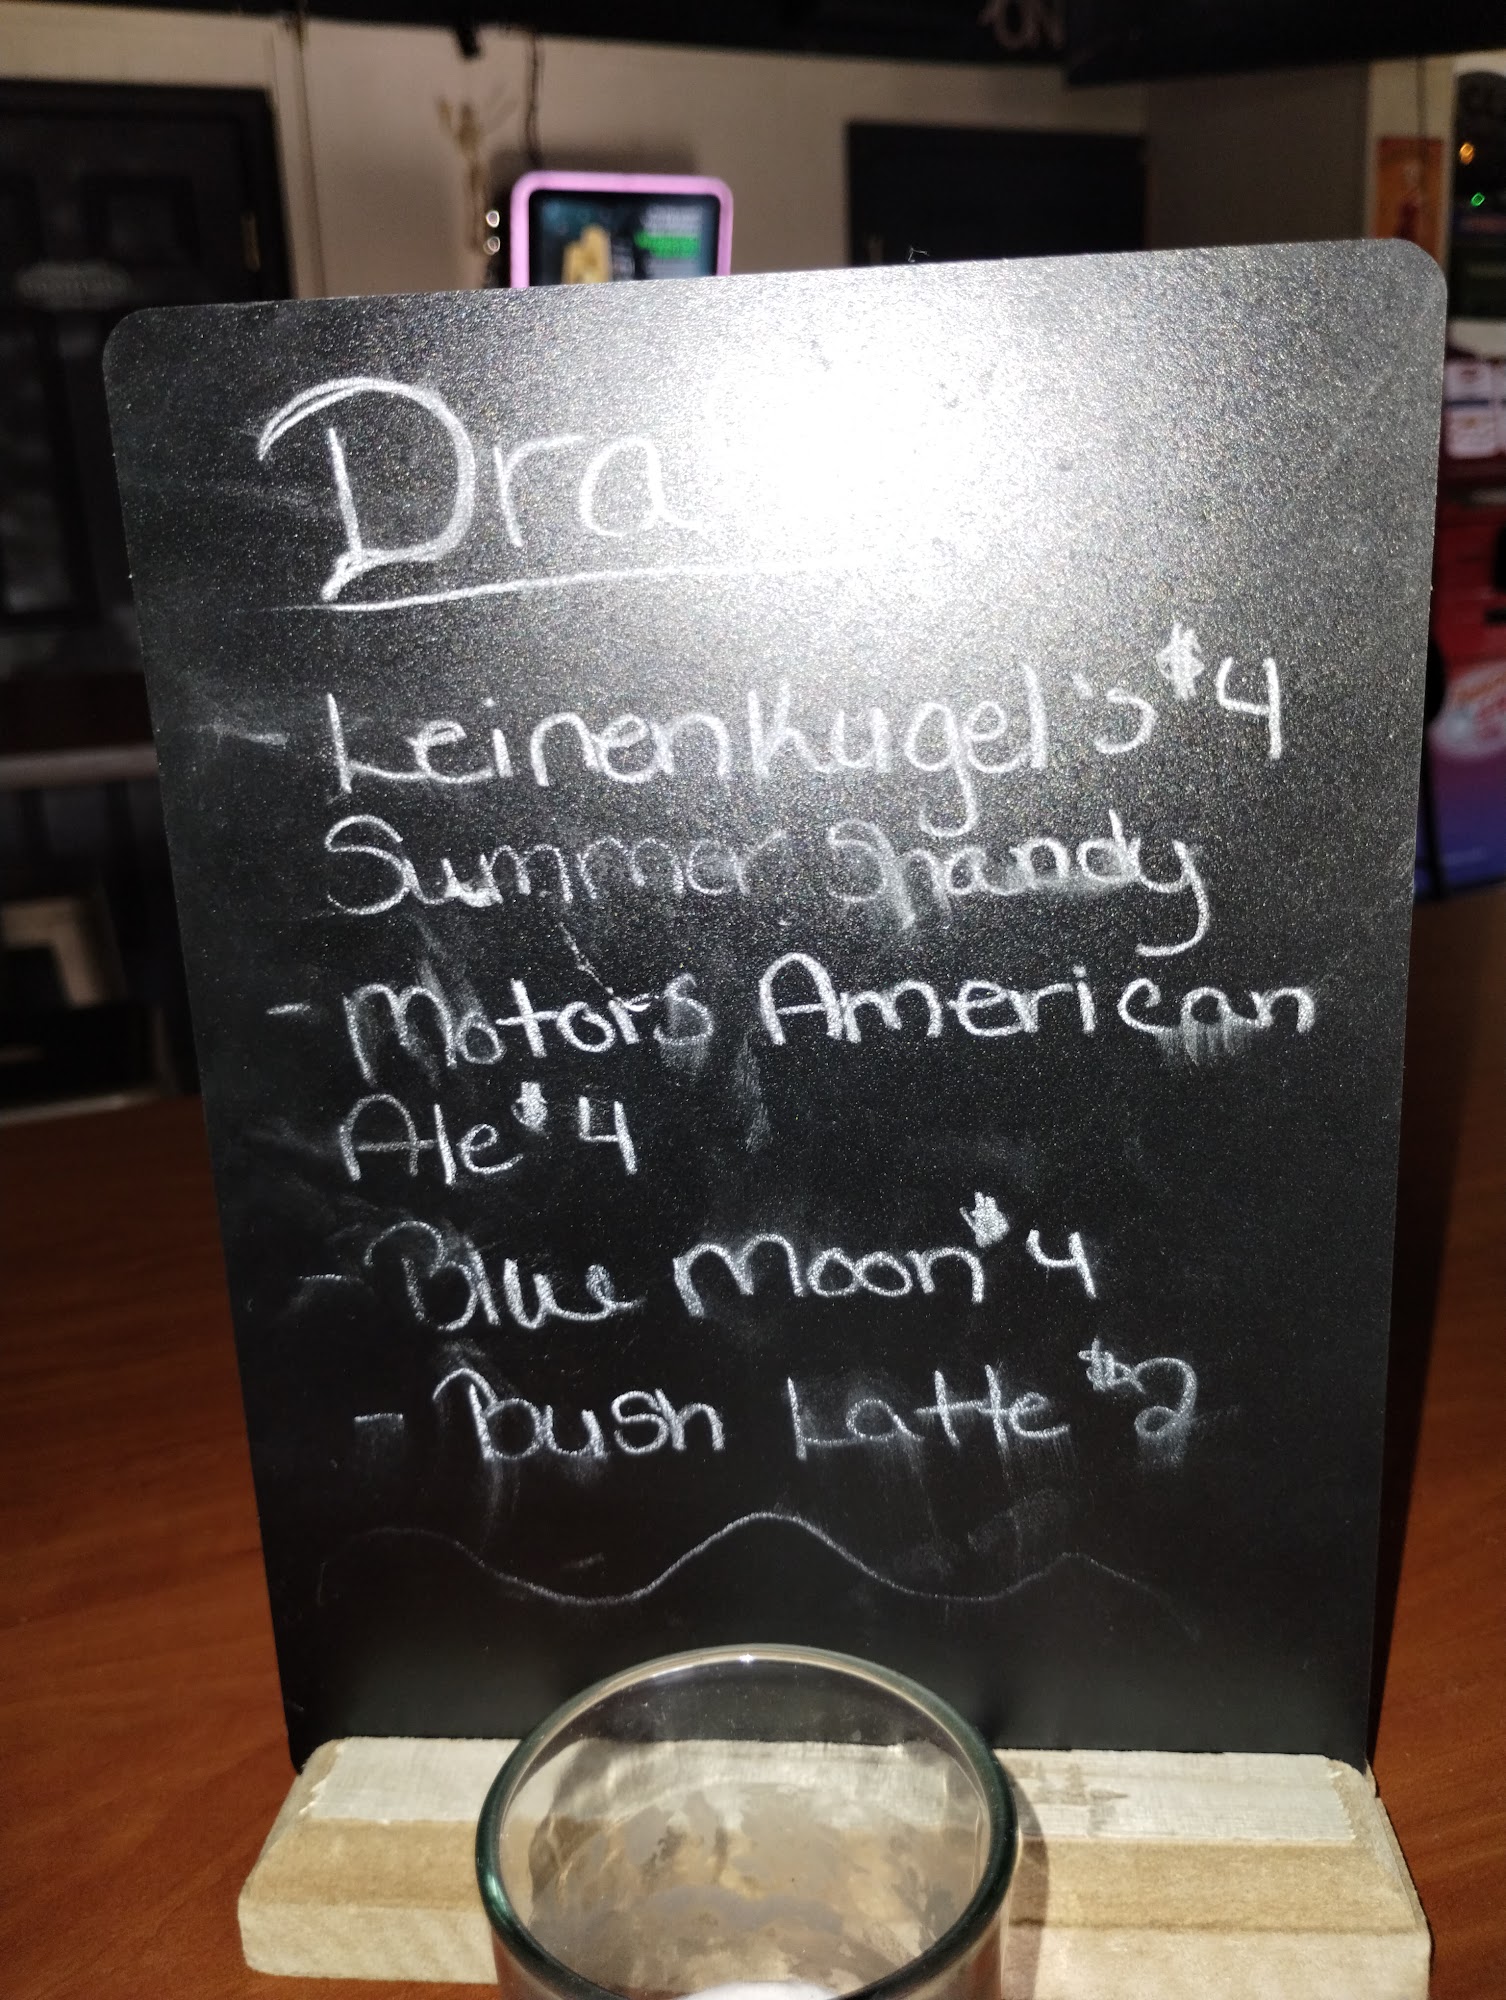 Dra
- Leinenkugel's $4
Summer Shandy
- Motors American
Ale $4
- Blue Moon $4
- Bush Latte $2